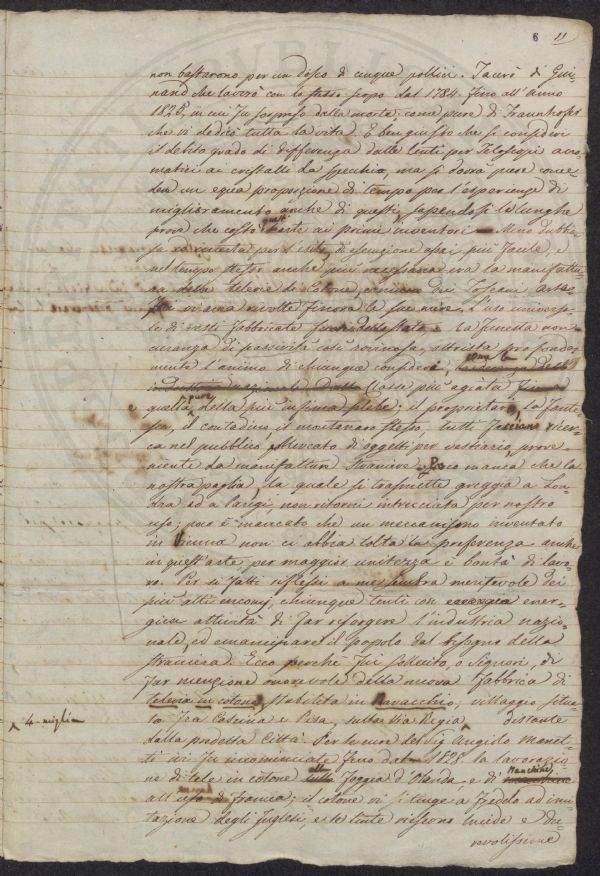 6 11
non bastarono per un disco di cinque pollici. Tacerò di Gui-
nand che lavorò con lo stesso scopo dal 1784. fino all'anno
1825, in cui fu sorpreso dalla morte; come pure di Fraunhofer
che vi dedicò tutta la vita. È ben giusto che si consideri
il debito grado di differenza dalle lenti per Telescopj acro-
matici ai cristalli da specchio, ma si dovrà pure conce-
dere un equa proporzione di tempo per l'esperienze di
miglioramento anche di questi, sapendosi le lunghe
prove che costò quest' arte ai primi inventori. Meno dubbia
sa reiventa per l'esito, di esecuzione assai più facile, e
nel tempo stesso anche più necessaria era la manifattu-
ra delle telerie di Cotone,
vi avea rivolte finora le sue mire. L'uso universa-
le di vesti fabbricate fuori dello Stato e la funesta non
curanza di passività così rovinosa, attrista profonda-
mente l'animo di chiunque consideri, come la
Classe più agiata
e quella pure della più infima plebe; il proprietario, la fante-
sca, il contadino, il montanaro stesso, tutti facciano ricer-
ca nel pubblico Mercato di oggetti per vestiario prove-
niente da manifatture straniere. Poco manca che la
nostra paglia, la quale si trasmette greggia a Lon-
dra ed a Parigi, non ritorni intrecciata per nostro
uso; poco è mancato che un meccanismo inventato
in Vienna non ci abbia tolta la preferenza anche
in quest'arte per maggior unitezza e bontà di lavo-
ro. Per sì fatti riflessi a me sembra meritevole dei
più alti encomj, chiunque tenti con ener-
gica attività di far risorgere l'industria nazio-
nale, ed emancipare il popolo dal bisogno della
straniera. Ecco perchè fui sollecito, o Signori, di
far menzione onorevole della nuova fabbrica di
telerie in cotone stabilita in Navacchio, villaggio situa-
to fra Cascina e Pisa, sulla Via Regia, distante
4. miglia
dalla predetta Città. Per le cure del Sig. Angiolo Manet-
ti ivi fu incominciata fino dal 1828. la lavorazio-
ne di tele in cotone alla foggia d'Olanda, e di Manchine
all'uso di Francia; il cotone vi si tinge a freddo ad imi-
tazione degli Inglesi, e le tinte riescono lucide e du-
revolissime